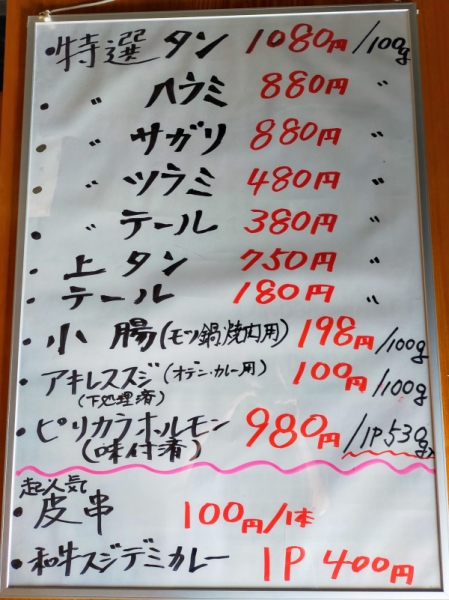 ・特選 タン 1080円/100g
・ 〃 ハラミ 880円 〃
・ 〃 サガリ 880円 〃
・ 〃 ツラミ 480円 〃
・ 〃 テール 380円 〃
・上 タン 750円 〃
・テール 180円 〃
・小 腸(モツ鍋・焼肉用) 198円/100g
・アキレススジ(オデン・カレー用) 100円/100g
(下処理済)
・ピリカラホルモン 980円/1P530g
(味付済)
超人気
・皮串 100円/1本
・和牛スジデミカレー 1P 400円